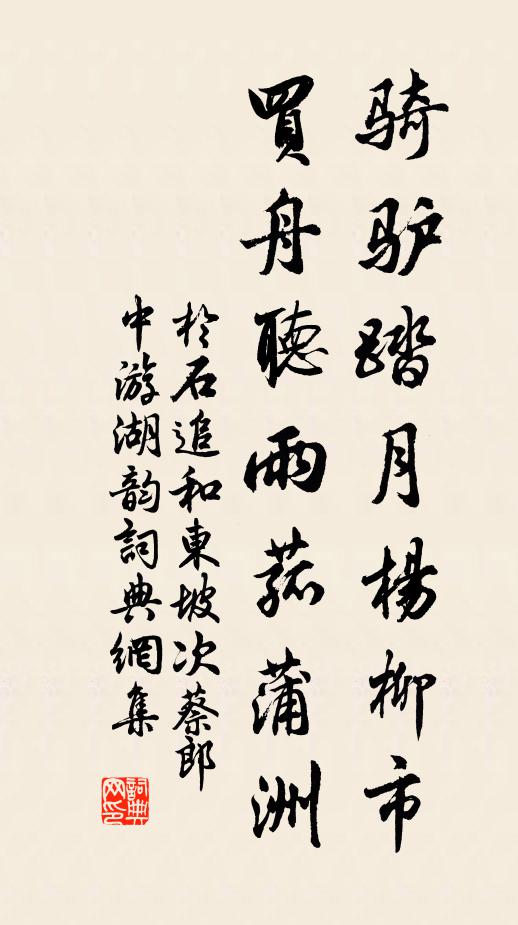 骑驴踏月杨柳市
買舟聽雨菰蒲洲
於石追和東坡次蔡郎
中游湖韵詞典網集
詞典
网印